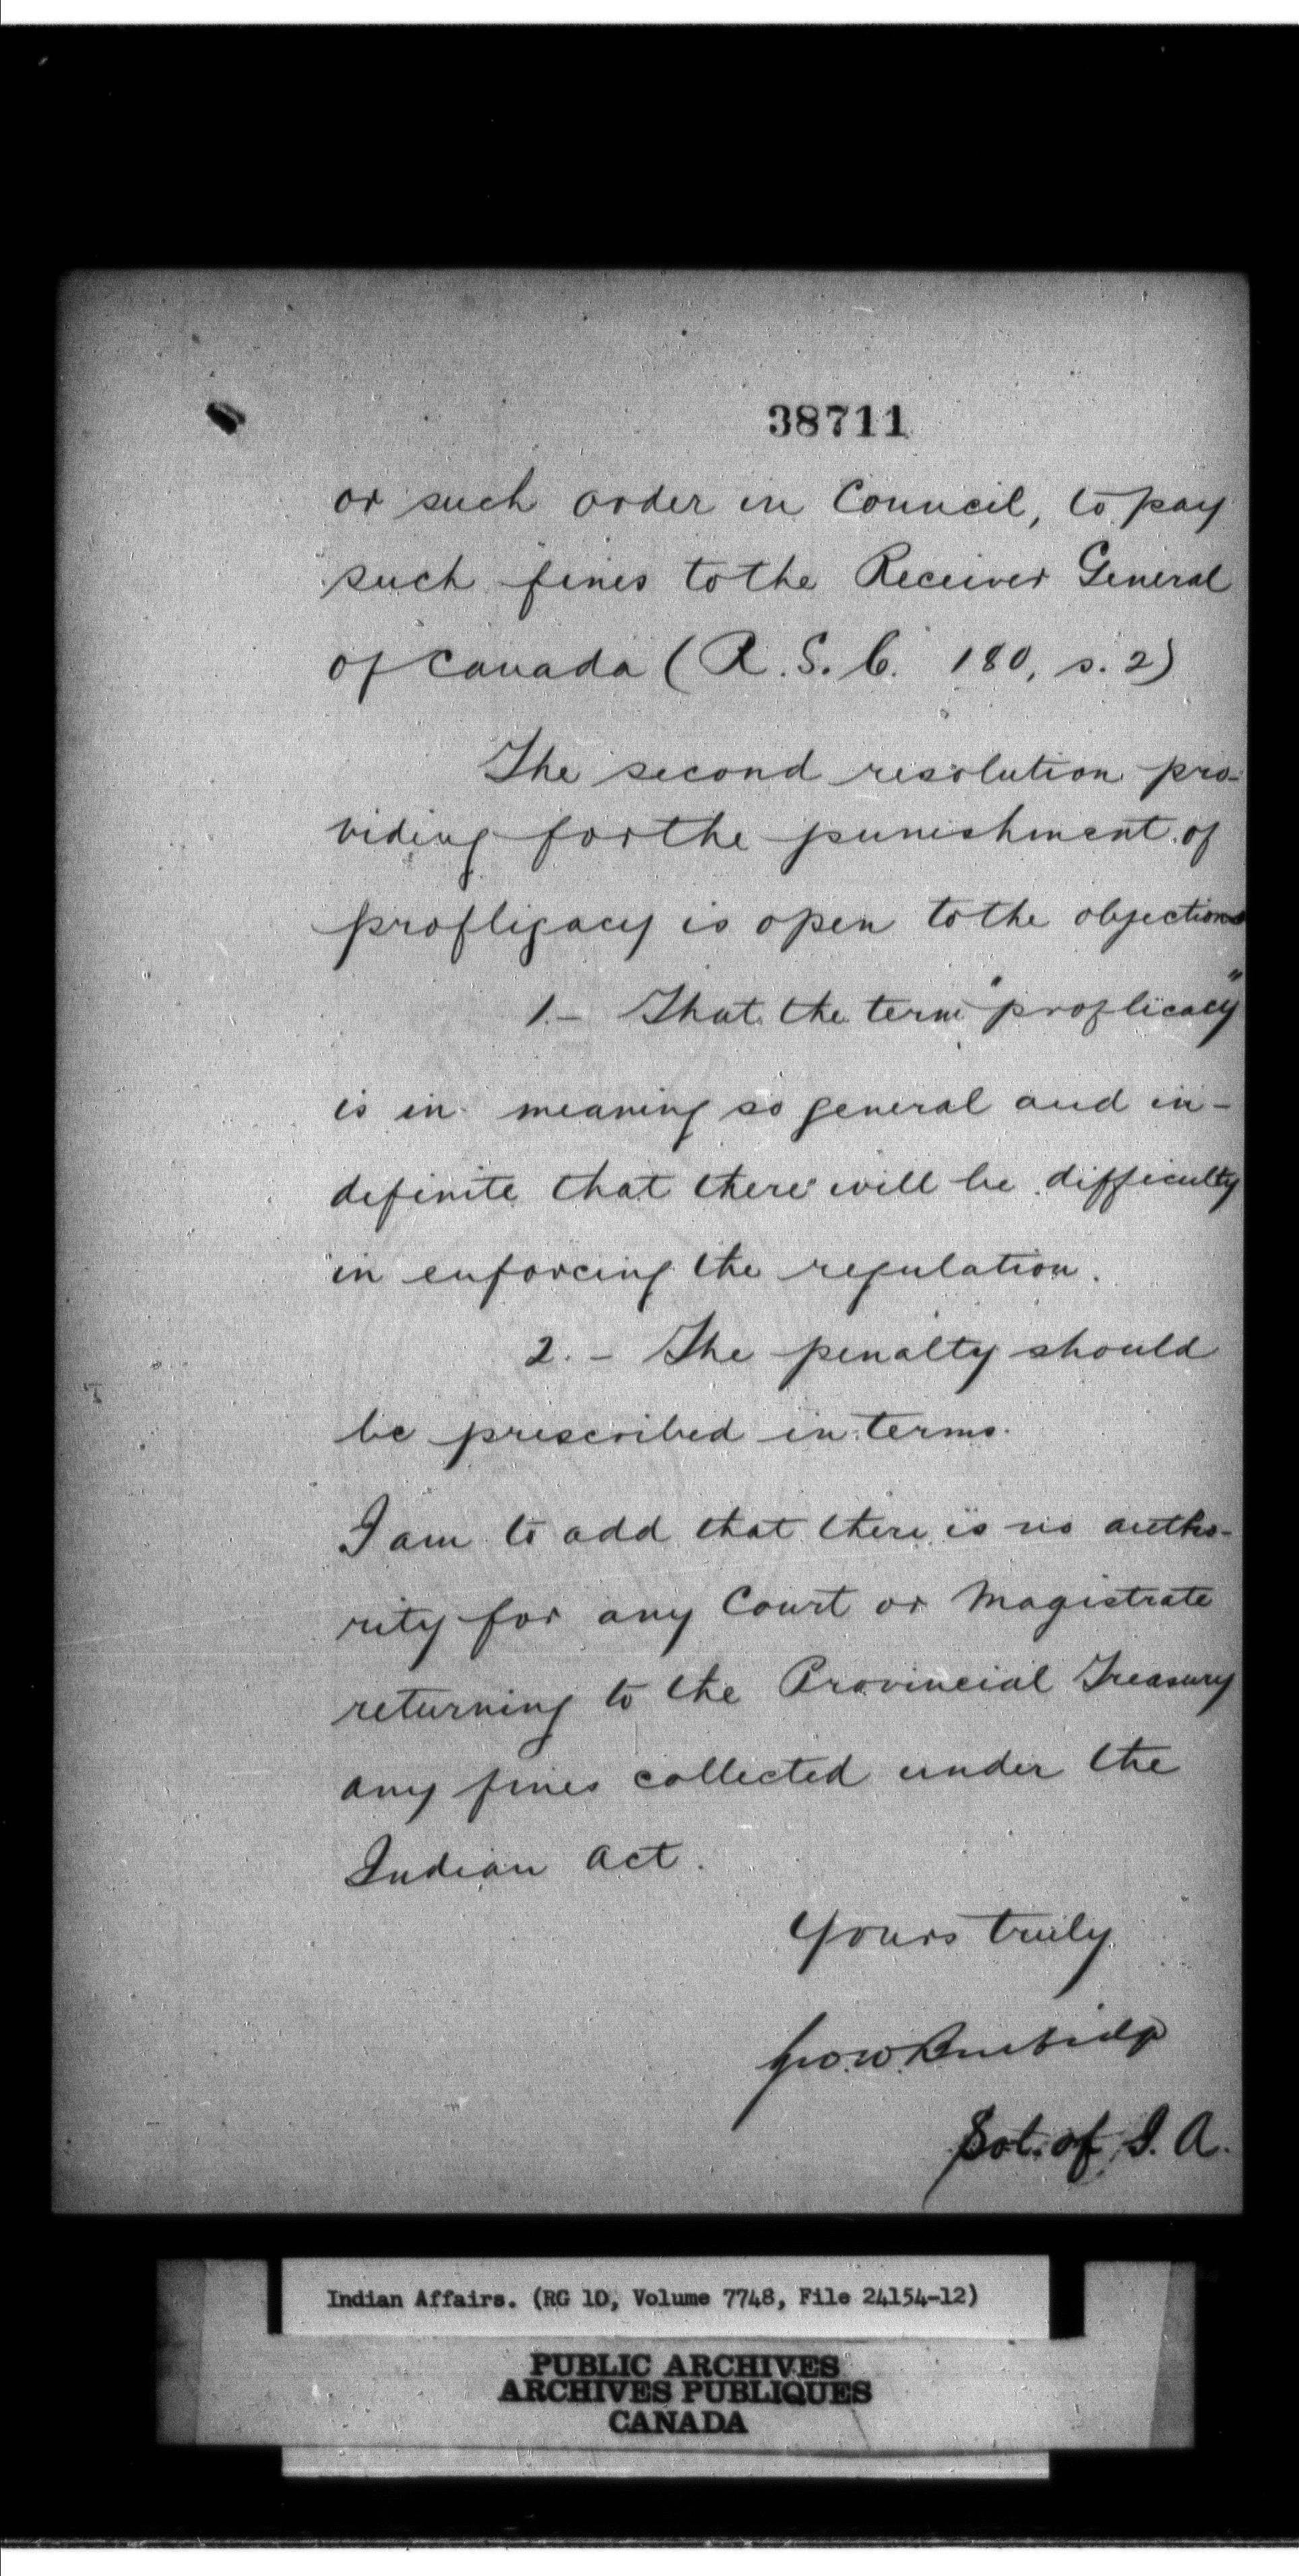 38711
or such order in Council, to pay
such fines to the Receiver General
of Canada (R.S.C. 180, s. 2)
The second resolution pro-
viding for the punishment of
profligacy is open to the objections
1.- That the term "proflicacy"
is in meaning so general and in-
definite that there will be difficulty
in enforcing the regulation.
2. - The penalty should
be prescribed in terms.
I am to add that there is no autho-
rity for any Court or Magistrate
returning to the Provincial Treasury
any fines collected under the
Indian Act.
Yours truly
Geo. W. Burbidge
Sol. of I. A.
Indian Affairs. (RG 10, Volume 7748, File 24154-12)
PUBLIC ARCHIVES
ARCHIVES PUBLIQUES
CANADA